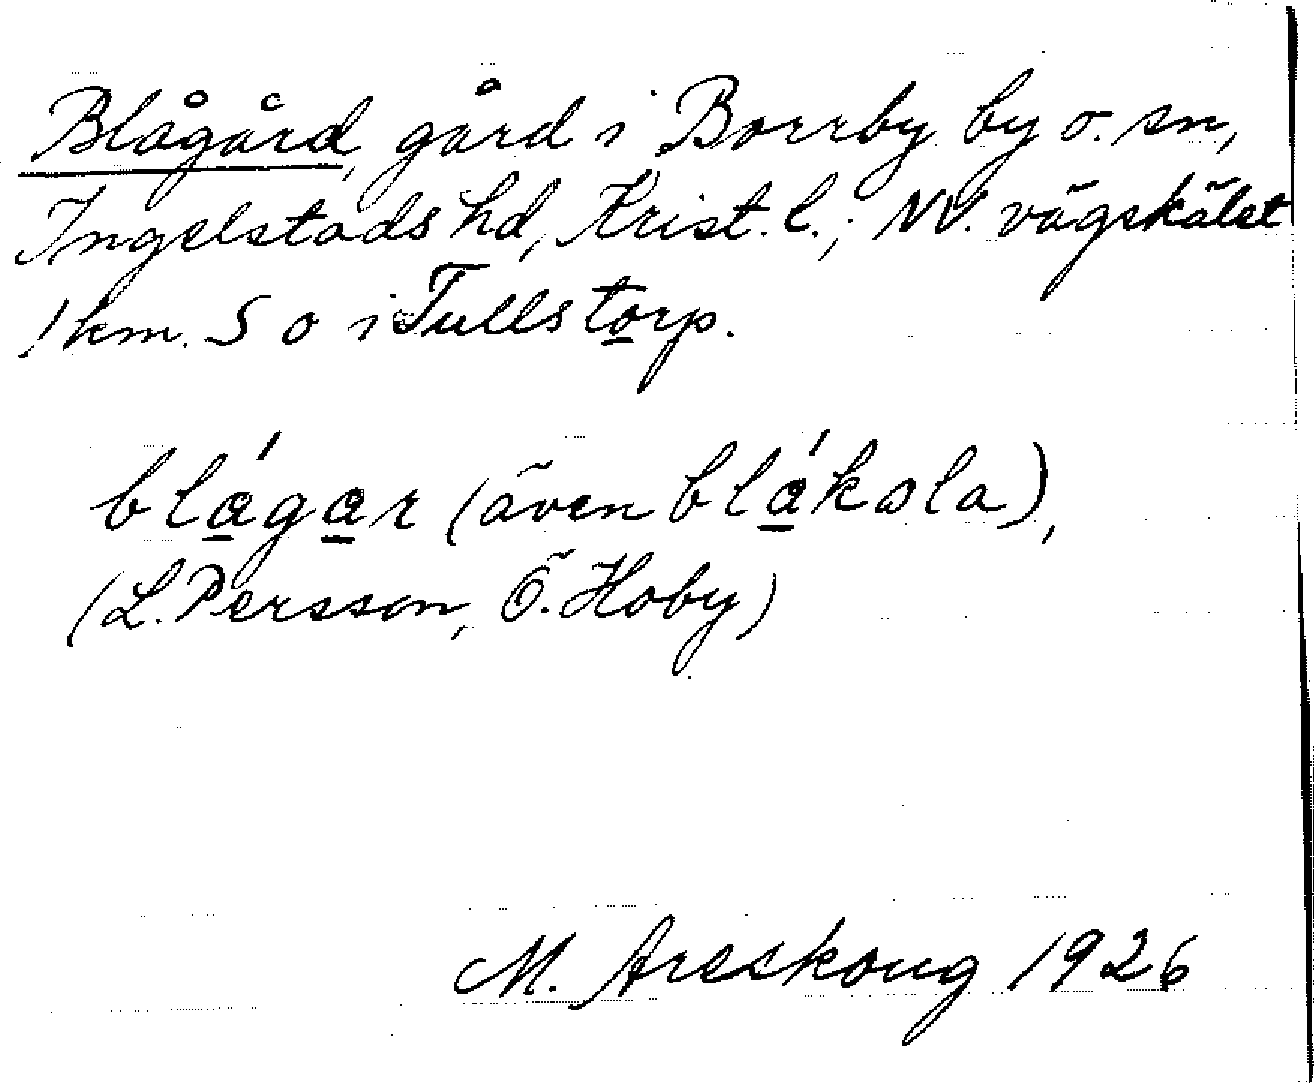 Blågård, gård i Borrby by o. sn,
Ingelstads hd, Krist. l.; NV. vägskälet
1 km. S o i Tullstorp.
blágar (även blákola),
(L. Persson, Ö. Hoby)
M. Areskoug 1926